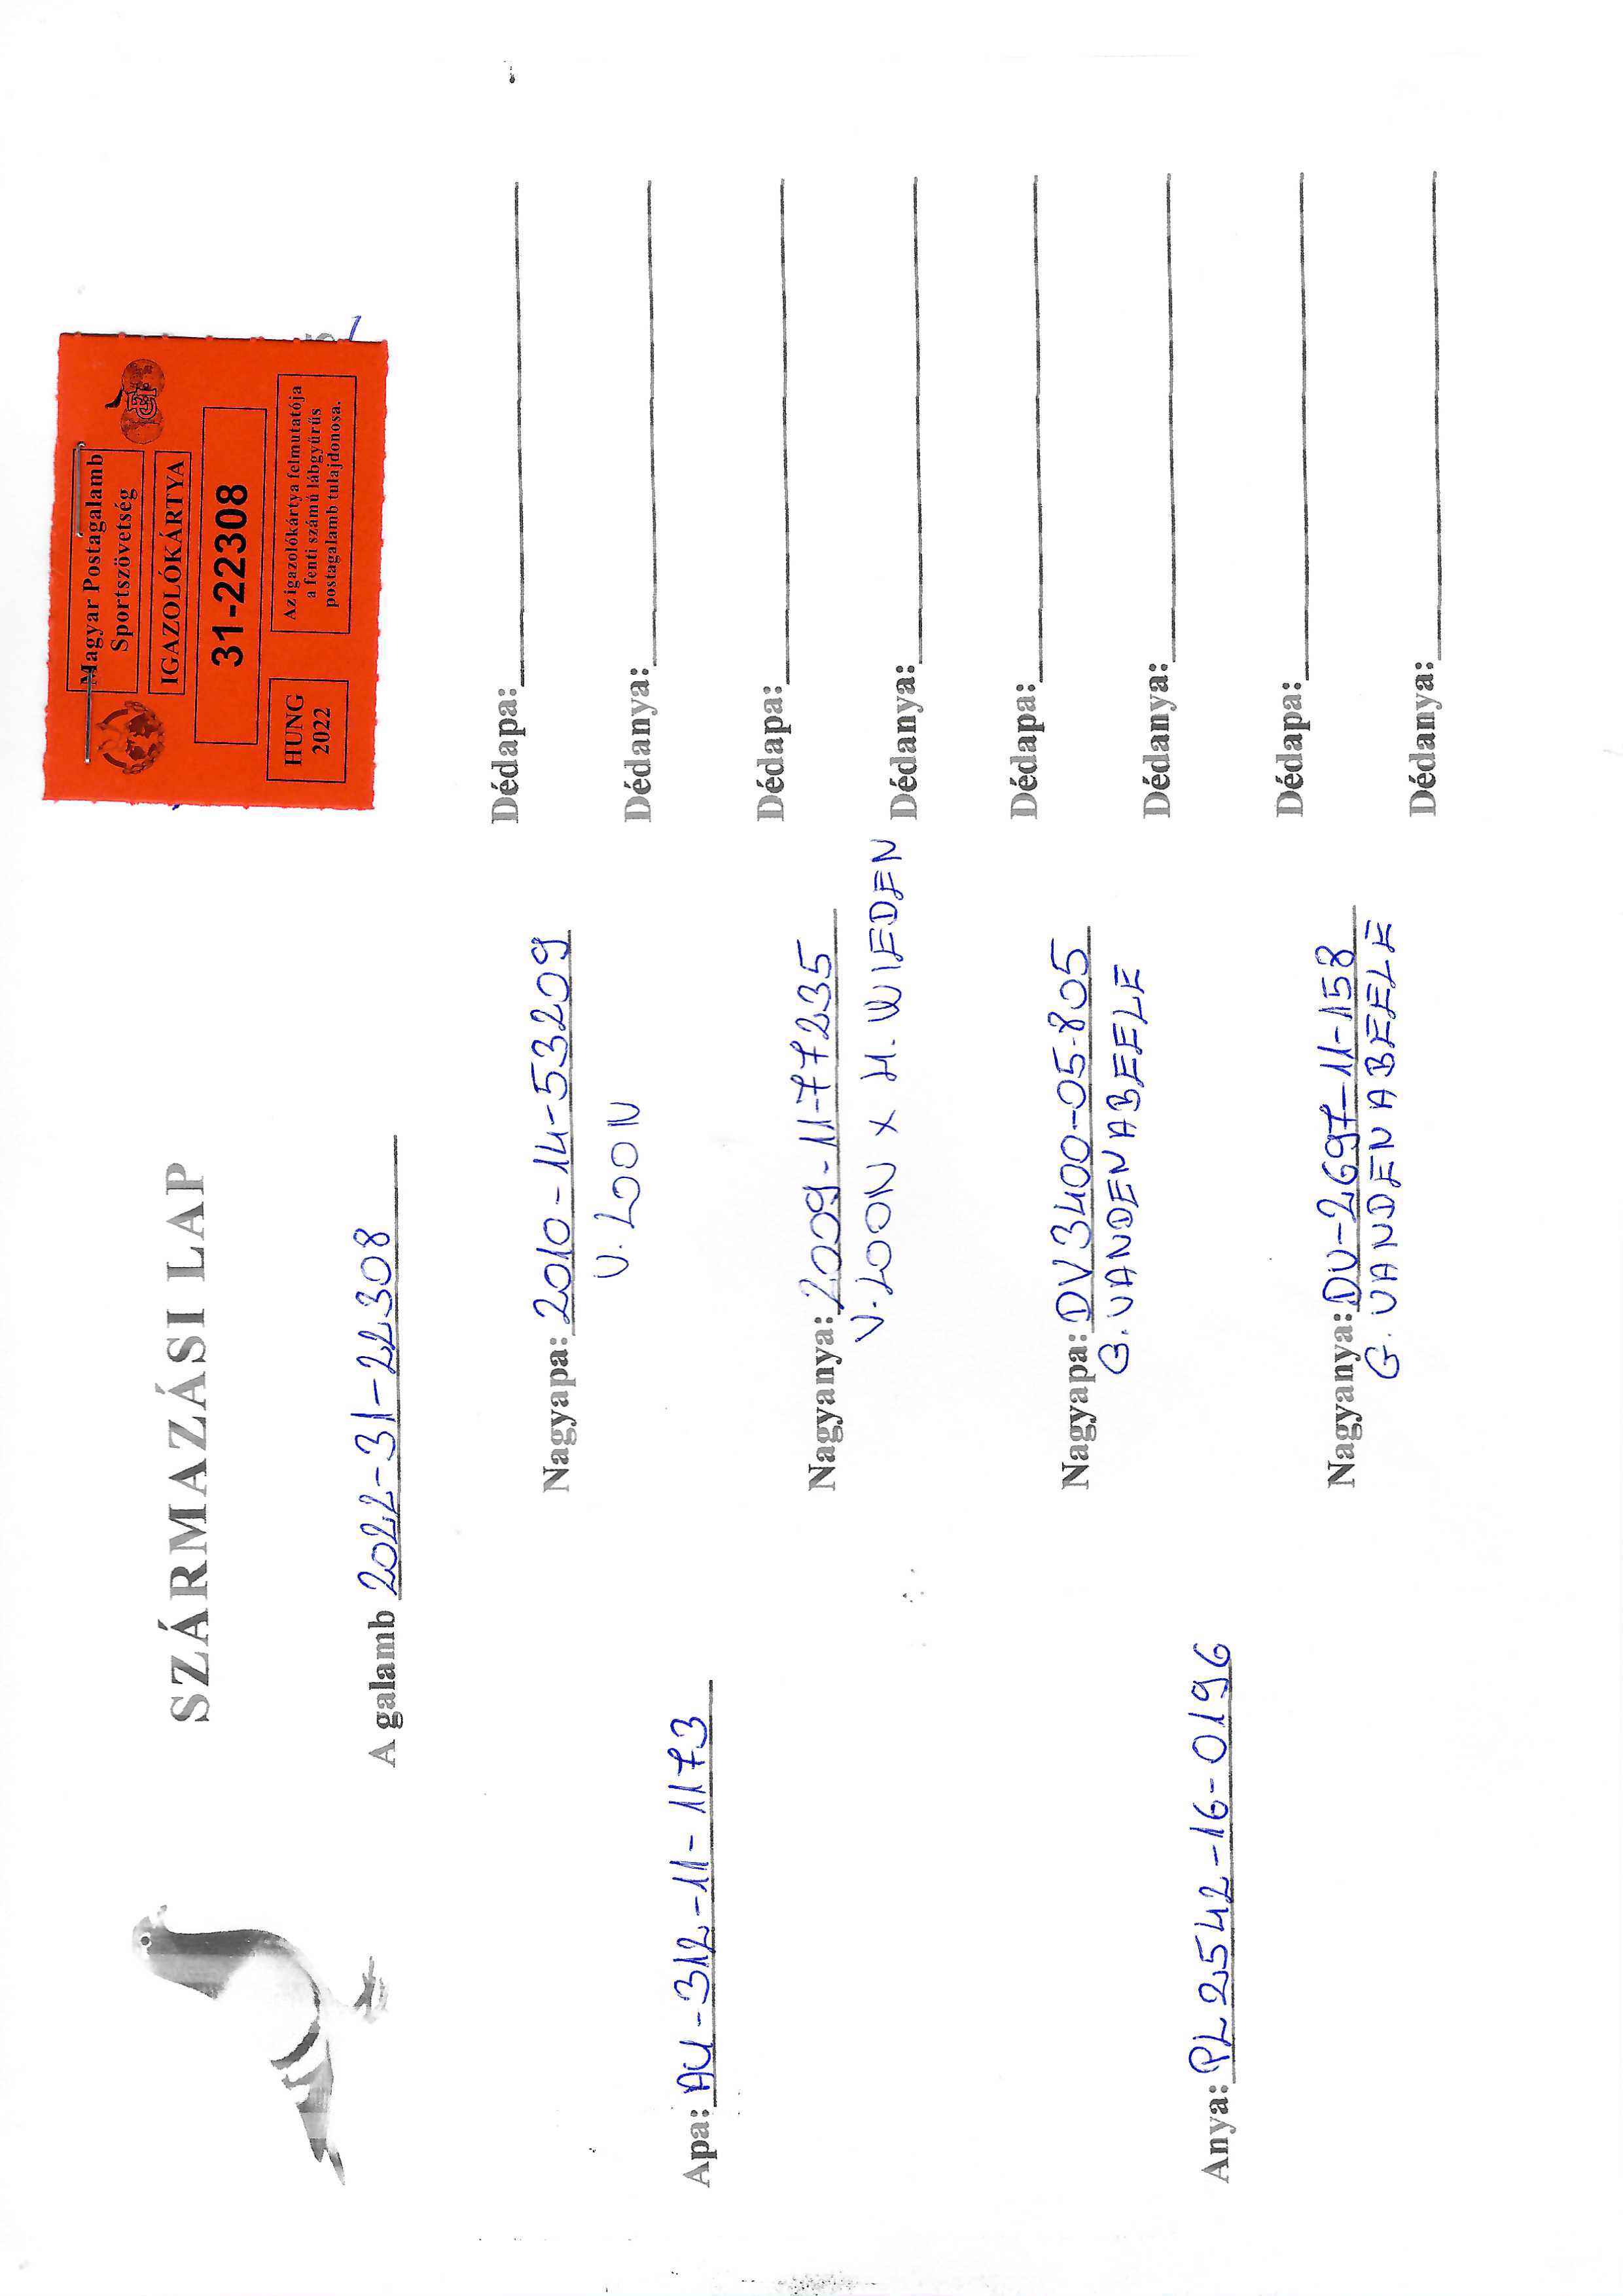 SZÁRMAZÁSI LAP
A galamb 2022-31-22308
Magyar Postagalamb
Sportszövetség
IGAZOLÓKÁRTYA
31-22308
HUNG
2022
Az igazolókártya felmutatója
a fenti számú lábgyűrűs
postagalamb tulajdonosa.
Apa: AU-312-11-1173
Anya: PL 2542-16-0196
Nagyapa: 2010-14-53209
V. LOON
Nagyanya: 2009-11-77235
V. LOON X H. WIEDEN
Nagyapa: DV3400-05-805
G. VANDENABEELE
Nagyanya: DV-2697-11-158
G. VANDENABEELE
Dédapa:
Dédanya:
Dédapa:
Dédanya:
Dédapa:
Dédanya:
Dédapa:
Dédanya: